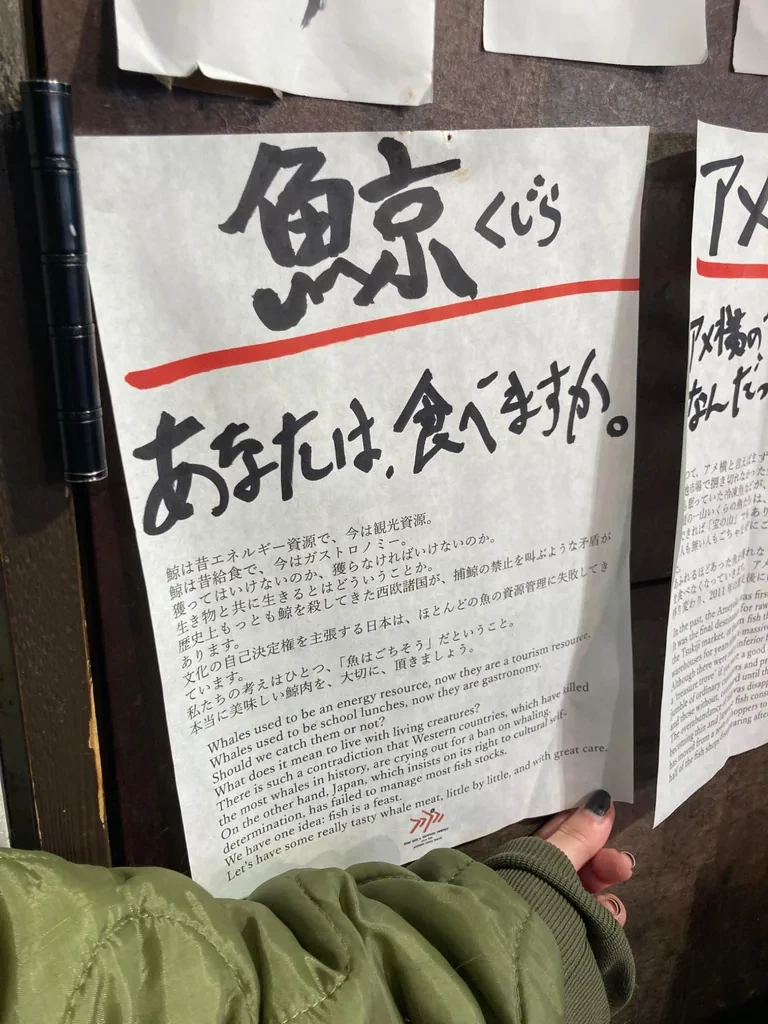 鯨 くじら
あなたは、食べますか。
鯨は昔エネルギー資源で、今は観光資源。
鯨は昔給食で、今はガストロノミー。
獲ってはいけないのか、獲らなければいけないのか。
生き物と共に生きるとはどういうことか。
歴史上もっとも鯨を殺してきた西欧諸国が、捕鯨の禁止を叫ぶような矛盾が
あります。
文化の自己決定権を主張する日本は、ほとんどの魚の資源管理に失敗してき
ています。
私たちの考えはひとつ、「魚はごちそう」だということ。
本当に美味しい鯨肉を、大切に、頂きましょう。
Whales used to be an energy resource, now they are a tourism resource.
Whales used to be school lunches, now they are gastronomy.
Should we catch them or not?
What does it mean to live with living creatures?
There is such a contradiction that Western countries, which have killed
the most whales in history, are crying out for a ban on whaling.
On the other hand, Japan, which insists on its right to cultural self-
determination, has failed to manage most fish stocks.
We have one idea: fish is a feast.
Let's have some really tasty whale meat, little by little, and with great care.
アメ
アメ横の
なんだっ
つて、アメ横と言えば
In the past, the
It was the final
the Tsukiji market,
although there were